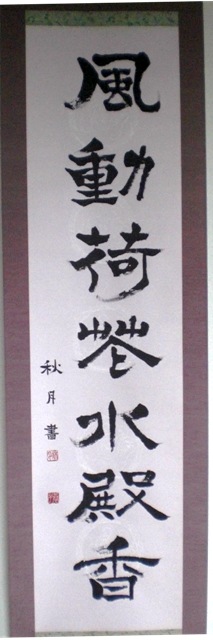 風動荷花水殿香
秋月書